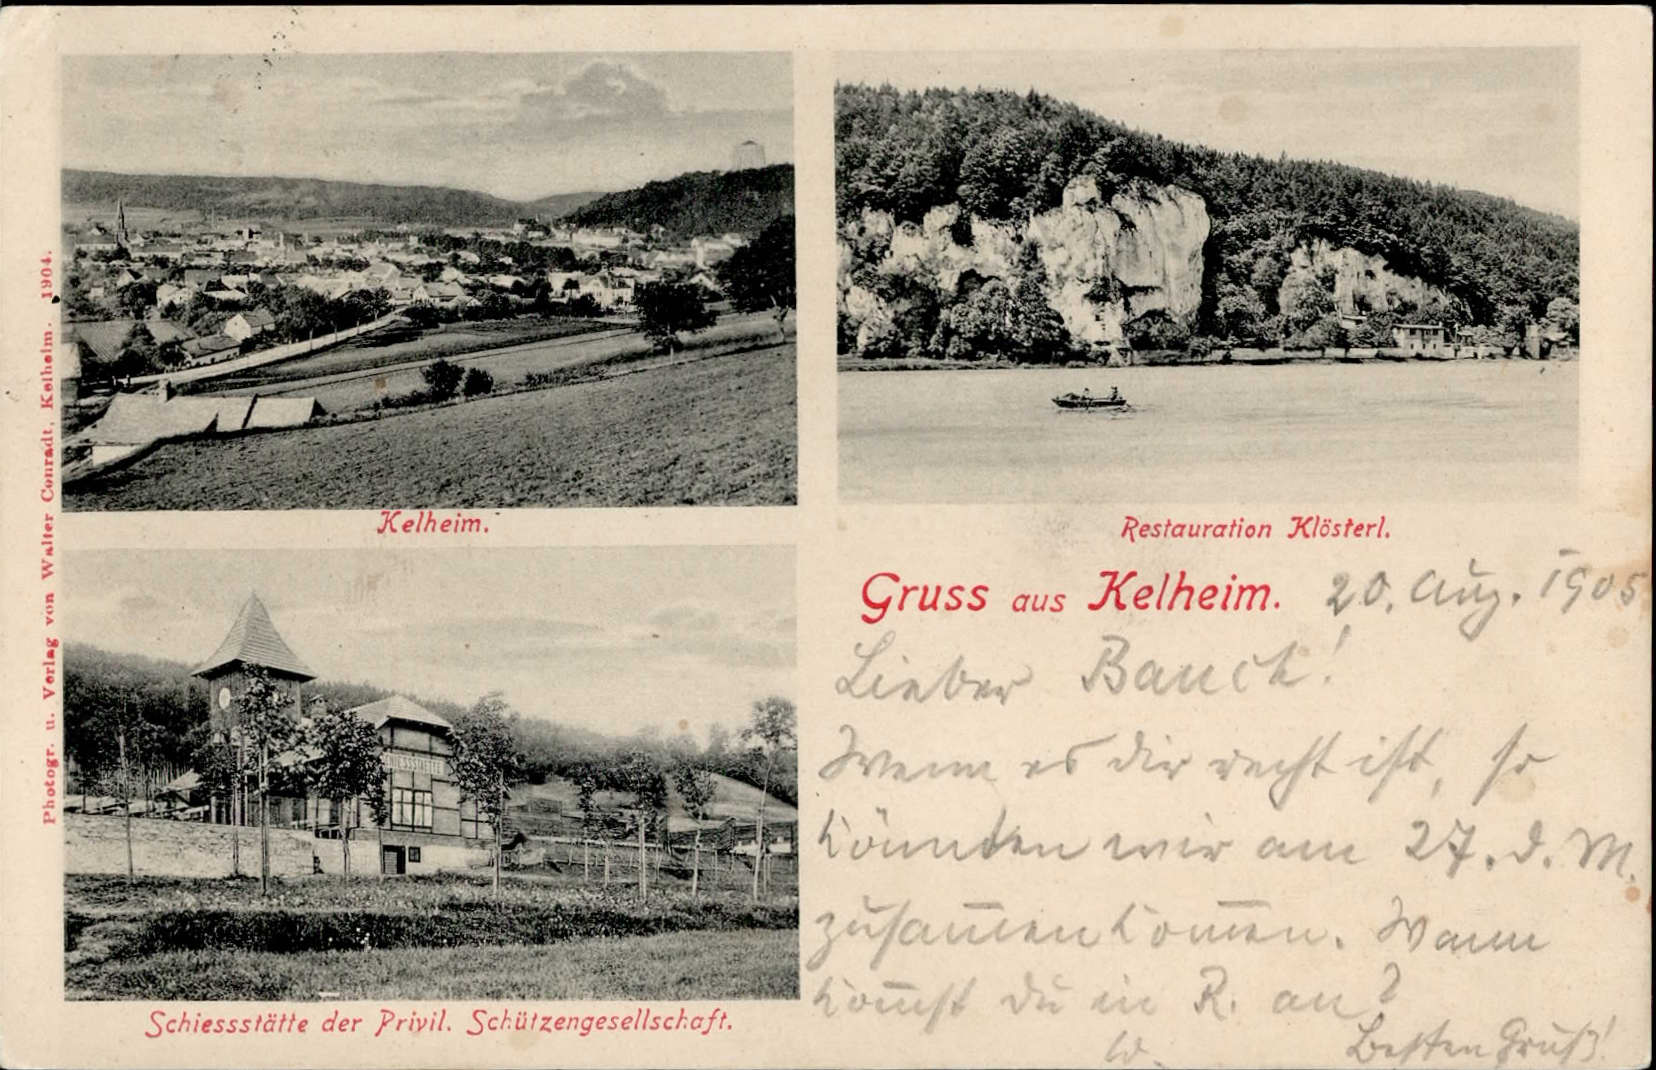 Photogr. u. Verlag von Walter Conradt, Kelheim. 1904.
Kelheim.
Restauration Klösterl.
SCHIESSSTÄTTE
Schiessstätte der Privil. Schützengesellschaft.
Gruss aus Kelheim. 20. Aug. 1905
Lieber Bauch!
Wenn es dir recht ist, so
könnten wir am 27. d. M.
zusam̅en kom̅en. Wann
kom̅st du in R. an?
W. Besten Gruß!